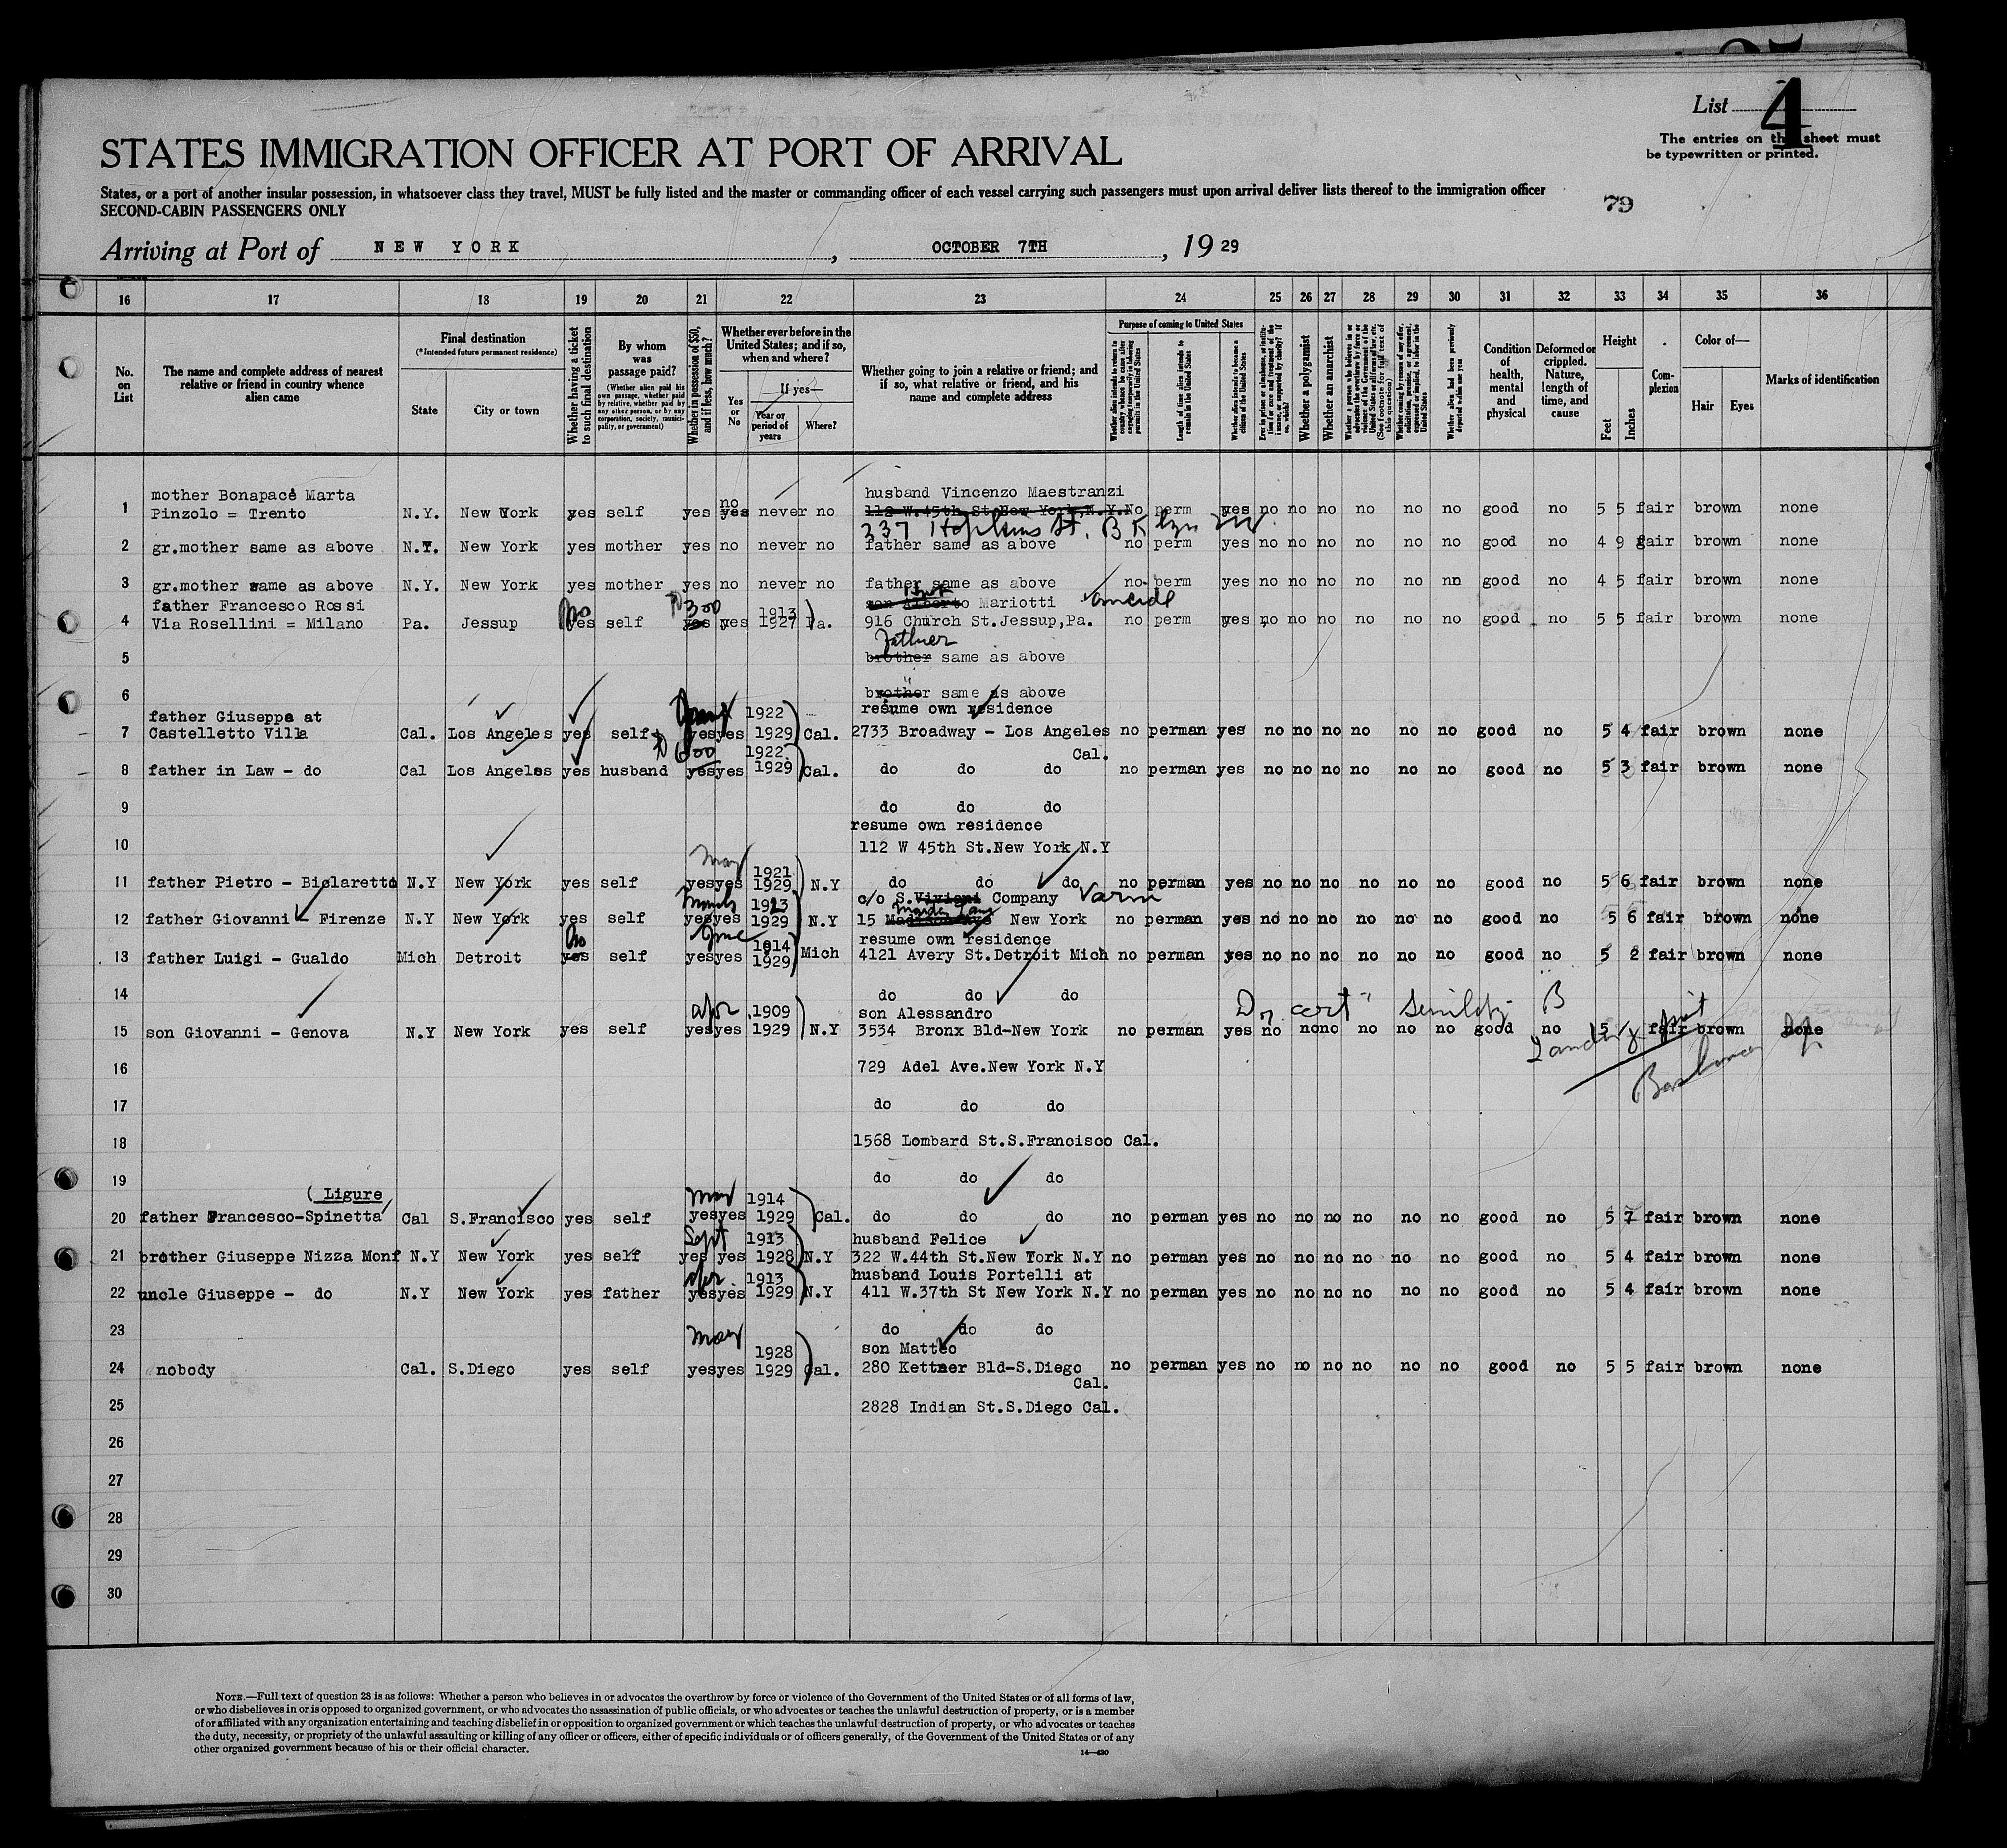 List 4
The entries on this sheet must
be typewritten or printed.
STATES IMMIGRATION OFFICER AT PORT OF ARRIVAL
States, or a port of another insular possession, in whatsoever class they travel, MUST be fully listed and the master or commanding officer of each vessel carrying such passengers must upon arrival deliver lists thereof to the immigration officer
SECOND-CABIN PASSENGERS ONLY
79
Arriving at Port of NEW YORK, OCTOBER 7TH, 1929
16 17 18 19 20 21 22 23 24 25 26 27 28 29 30 31 32 33 34 35 36
No. on List
The name and complete address of nearest relative or friend in country whence alien came
Final destination
(*Intended future permanent residence)
State
City or town
Whether having a ticket to such final destination
By whom was passage paid?
(Whether alien paid his own passage, whether paid by relative, whether paid by any other person, or by any corporation, society, municipality, or government)
Whether in possession of $50, and if less, how much?
Whether ever before in the United States; and if so, when and where?
Yes or No
If yes—
Year or period of years
Where?
Whether going to join a relative or friend; and if so, what relative or friend, and his name and complete address
Purpose of coming to United States
Length of time alien intends to remain in the United States
Whether alien intends to become a citizen of the United States
Whether a polygamist
Whether an anarchist
Whether alien had been previously deported within one year
Condition of health, mental and physical
Deformed or crippled. Nature, length of time, and cause
Height
Feet
Inches
Complexion
Color of—
Hair
Eyes
Marks of identification
mother Bonapace Marta husband Vincenzo Maestranzi
1 Pinzolo = Trento N.Y. New York yes self yes no yes never no 112 W.45th St.New York,N.Y. No perm yes no no no no no no good no 5 5 fair brown none
337 Hopkins St. Bklyn NY.
2 gr.mother same as above N.Y. New York yes mother yes no never no father same as above no perm yes no no no no no no good no 4 9 fair brown none
3 gr.mother same as above N.Y. New York yes mother yes no never no father same as above no perm yes no no no no no nn good no 4 5 fair brown none
father Francesco Rossi No 300 1913 son Alberto Mariotti
4 Via Rosellini = Milano Pa. Jessup yes self yes yes 1927 Pa. 916 Church St.Jessup,Pa. no perm yes no no no no no no good no 5 5 fair brown none
father
5 brother same as above
6 brother same as above
father Giuseppe at 1922 resume own residence
7 Castelletto Villa Cal. Los Angeles yes self yes yes 1929 Cal. 2733 Broadway - Los Angeles no perman yes no no no no no no good no 5 4 fair brown none
600 1922 Cal.
8 father in Law - do Cal Los Angeles yes husband yes yes 1929 Cal. do do do no perman yes no no no no no no good no 5 3 fair brown none
9 do do do
resume own residence
10 112 W 45th St.New York N.Y
May 1921
11 father Pietro - Biolaretto N.Y New York yes self yes yes 1929 N.Y do do do no perman yes no no no no no no good no 5 6 fair brown none
March 1923 c/o S.Viviani Company
12 father Giovanni - Firenze N.Y New York yes self yes yes 1929 N.Y 15 Madison Ave Maiden Lane New York no perman yes no no no no no no good no 5 6 fair brown none
No June 1914 resume own residence
13 father Luigi - Gualdo Mich Detroit yes self yes yes 1929 Mich 4121 Avery St.Detroit Mich no perman yes no no no no no no good no 5 2 fair brown none
14 do do do
Apr 1909 son Alessandro Dr. cert Senility B
15 son Giovanni - Genova N.Y New York yes self yes yes 1929 N.Y 3534 Bronx Bld-New York no perman yes no no no no no no good no 5 fair brown none
16 729 Adel Ave.New York N.Y
17 do do do
18 1568 Lombard St.S.Francisco Cal.
19 do do do
( Ligure May 1914
20 father Francesco-Spinetta Cal S.Francisco yes self yes yes 1929 Cal. do do do no perman yes no no no no no no good no 5 7 fair brown none
Sept 1913 husband Felice
21 brother Giuseppe Nizza Monf N.Y New York yes self yes yes 1928 N.Y 322 W.44th St.New York N.Y no perman yes no no no no no no good no 5 4 fair brown none
Apr. 1913 husband Louis Portelli at
22 uncle Giuseppe - do N.Y New York yes father yes yes 1929 N.Y 411 W.37th St New York N.Y no perman yes no no no no no no good no 5 4 fair brown none
23 do do do
May 1928 son Matteo
24 nobody Cal. S.Diego yes self yes yes 1929 Cal. 280 Kettner Bld-S.Diego no perman yes no no no no no no good no 5 5 fair brown none
Cal.
25 2828 Indian St.S.Diego Cal.
26
27
28
29
30
NOTE.—Full text of question 28 is as follows: Whether a person who believes in or advocates the overthrow by force or violence of the Government of the United States or of all forms of law,
or who disbelieves in or is opposed to organized government, or who advocates the assassination of public officials, or who advocates or teaches the unlawful destruction of property, or is a member
of or affiliated with any organization entertaining and teaching disbelief in or opposition to organized government or which teaches the unlawful destruction of property, or who advocates or teaches
the duty, necessity, or propriety of the unlawful assaulting or killing of any officer or officers, either of specific individuals or of officers generally, of the Government of the United States or of any
other organized government because of his or their official character.
14—430